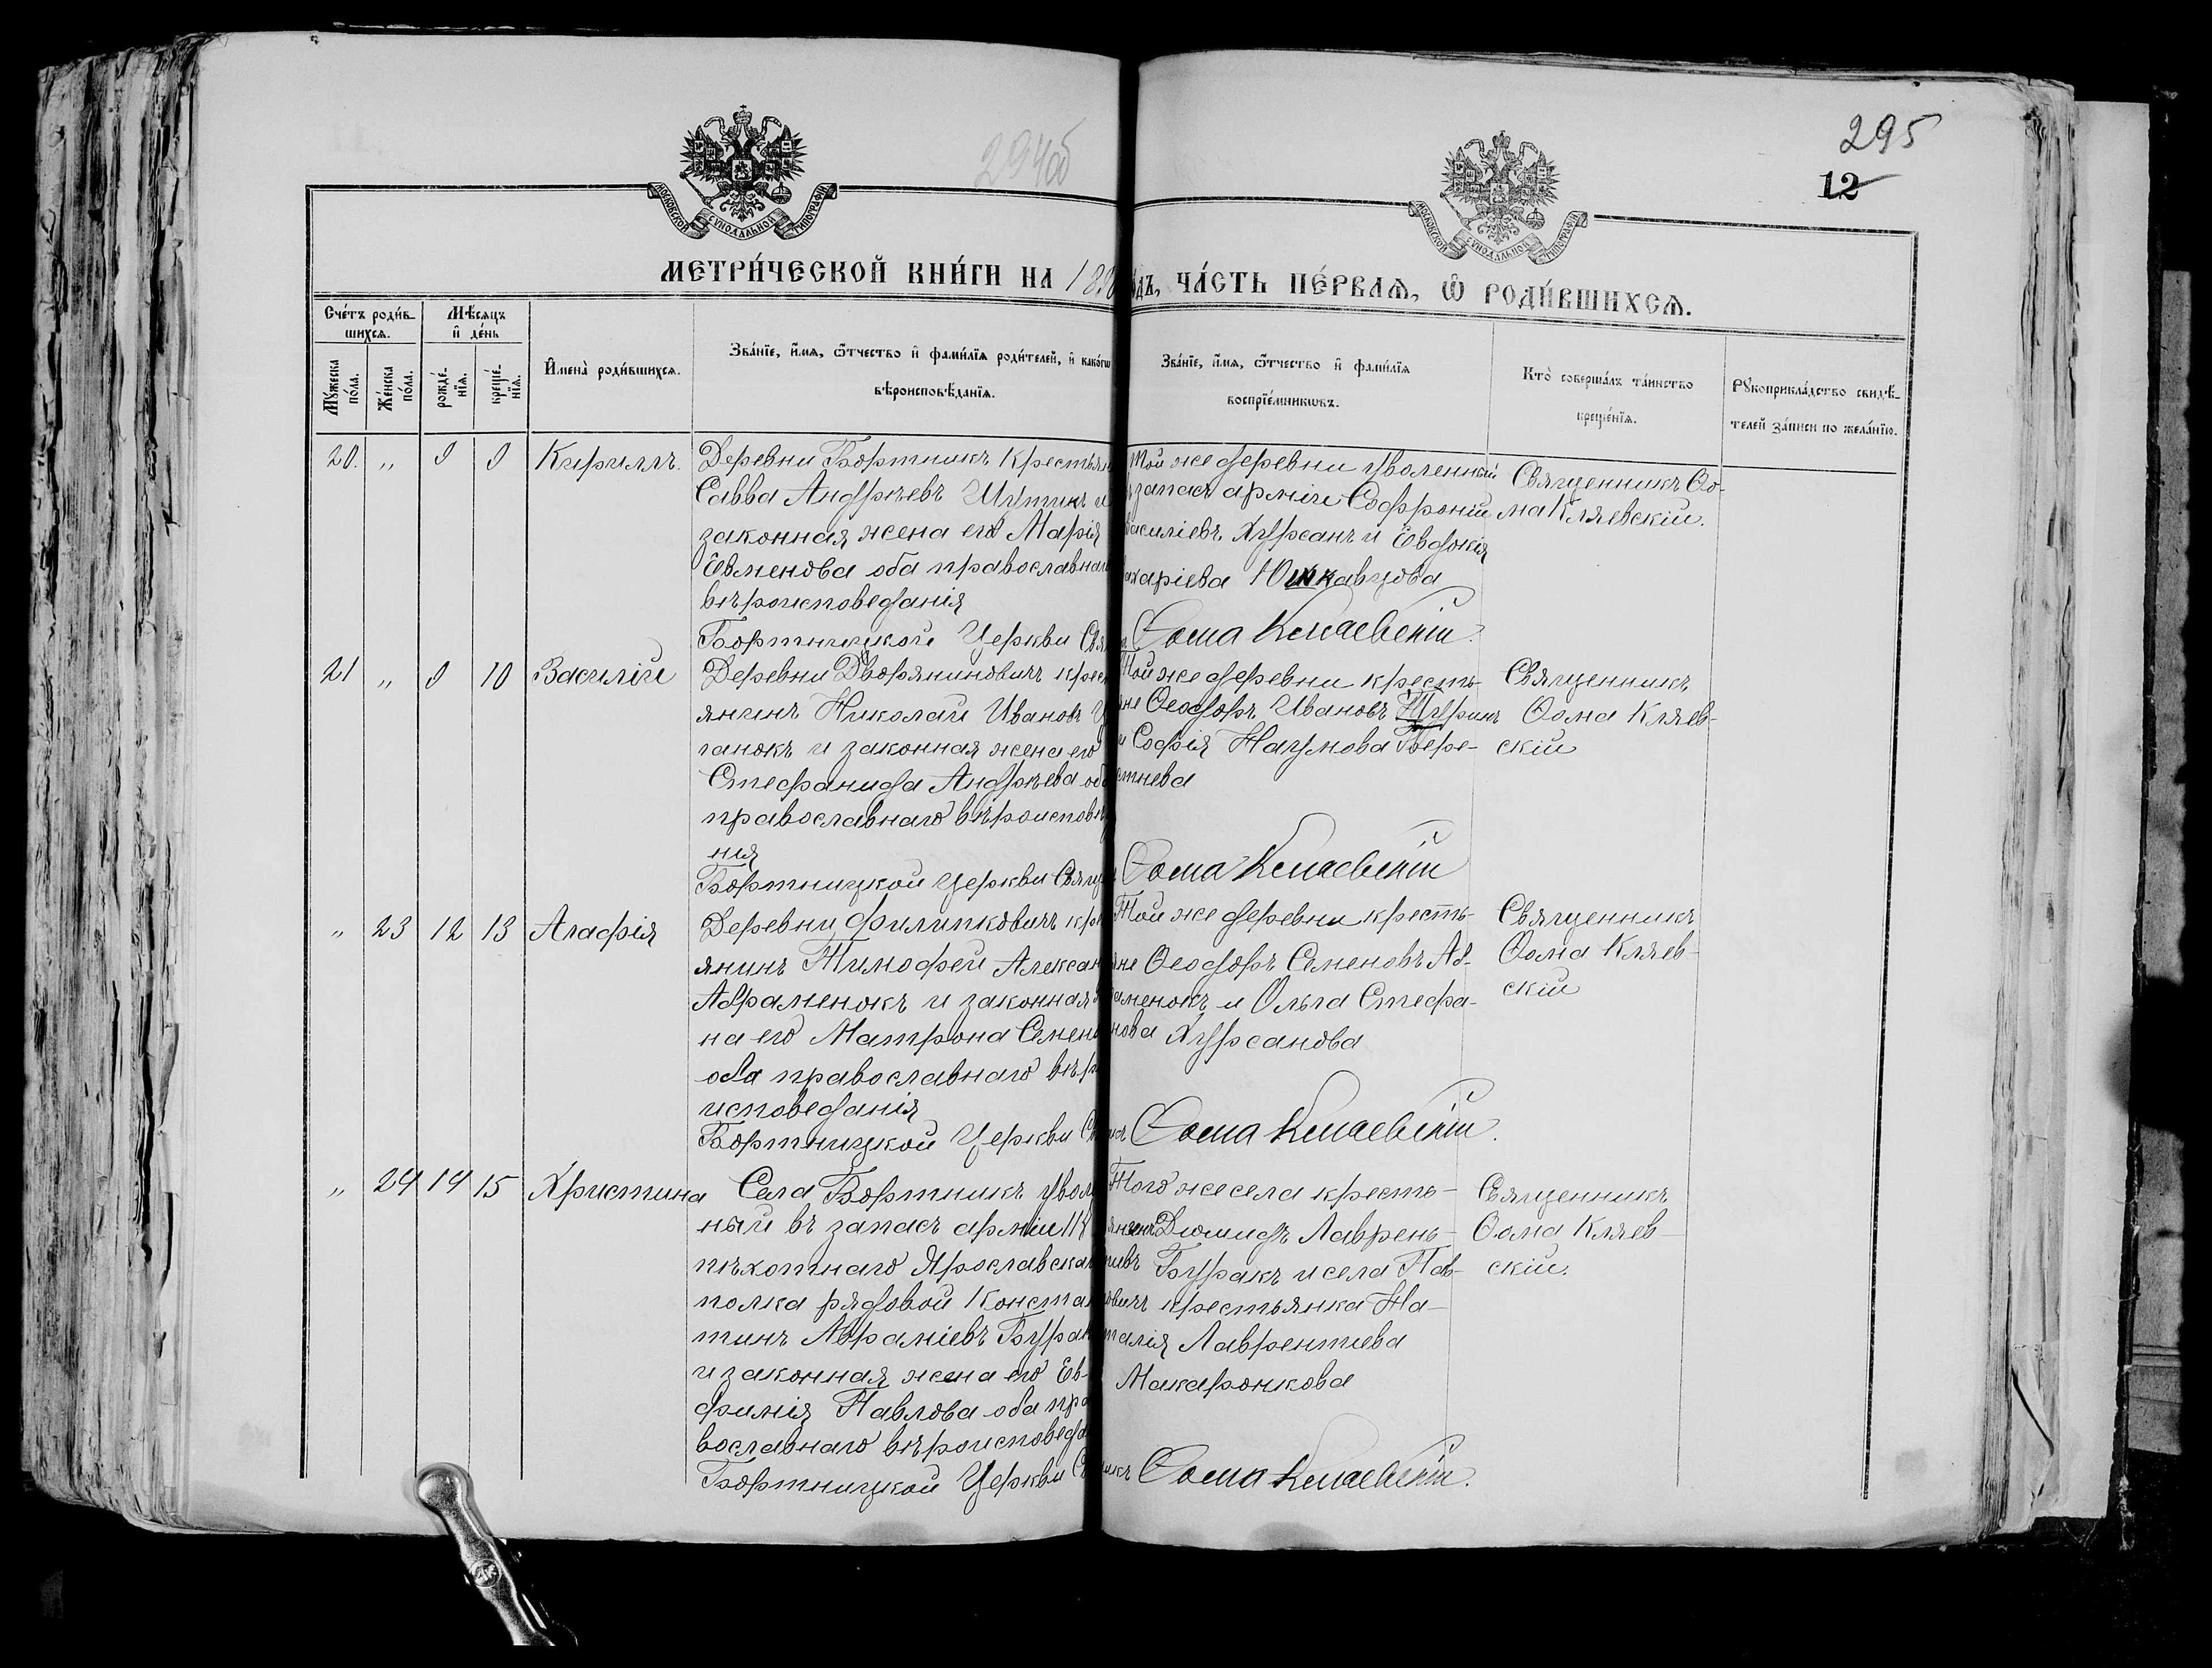 294об
295
12
МОСКОВСКОЙ СѴНОДАЛЬНОЙ ТИПОГРАФІИ
МОСКОВСКОЙ СѴНОДАЛЬНОЙ ТИПОГРАФІИ
МЕТРИ́ЧЕСКОЙ КНИ́ГИ НА 188
ЧА́СТЬ ПЕ́РВАѦ, Ѽ РОДИ́ВШИХСѦ.
Сче́тъ роди́в-
шихсѧ.
Мѣ́сѧцъ
и҆ де́нь
Мꙋ́жеска
по́ла.
Же́нска
по́ла.
рожде́-
нїѧ.
креще́-
нїѧ.
И҆мена̀ роди́вшихсѧ.
Зва́нїе, и҆́мѧ, ѻ҆́тчество и҆ фами́лїѧ роди́телей, и҆ како́гѡ
вѣроисповѣ́данїѧ.
Зва́нїе, и҆́мѧ, ѻ҆́тчество и҆ фами́лїѧ
воспрїе́мникѡвъ.
Кто̀ соверша́лъ та́инство
креще́нїѧ.
Рꙋкоприкла́дство свидѣ́-
телей за́писи по жела́нїю.
20. „ 9 9 Кириллъ.
Деревни Бортникъ крестьян
Савва Андреевъ Шутикъ и
законная жена его Марія
Евменова оба православнаго
вѣроисповеданія
Бортницкой Церкви Свя
Той же деревни уволенный
запасъ арміи Софроній
Василіевъ Хурсанъ и Евдокія
харіева
Священникъ Ѳо-
ма Кляевскій.
Ѳома Кляевскій.
21 „ 9 10 Василій
Деревни Дворяниновичъ крест
янинъ Николай Ивановъ
ганокъ и законная жена его
Стефанида Андреева оба
православнаго вѣроисповѣ
нія
Бортницкой Церкви Свящ
Той же деревни кресть-
яне Ѳеодоръ Ивановъ
и Софія Наумова Бере-
стнева
Священникъ
Ѳома Кляев-
скій
Ѳома Кляевскій
„ 23 12 13 Агафія
Деревни Филипковичъ кре
янинъ Тимофей Алексан
Авраменокъ и законная
на его Матрона Семен
оба православнаго вѣр
исповеданія
Бортницкой Церкви
Той же деревни кресть-
яне Ѳеодоръ Семеновъ Ав-
раменокъ и Ольга Стефа-
нова Хурсанова
Священникъ
Ѳома Кляев-
скій
Ѳома Кляевскій.
„ 24 14 15 Христина
Села Бортникъ увол
ный въ запасъ арміи 11
пѣхотнаго Ярославска
полка рядовой Констан
тинъ Авраміевъ Бурак
и законная жена его Ев-
фимія Павлова оба пра
вославнаго вѣроисповеда
Бортницкой Церкви
Того же села кресть-
янинъ Диомидъ Лаврень-
тивъ Буракъ и села Пав-
ловичъ крестьянка На-
талія Лаврентиева
Макаронкова
Священникъ
Ѳома Кляев-
скій.
Ѳома Кляевскій.